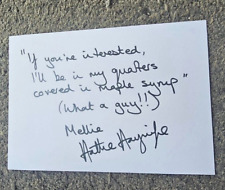 "If you're interested,
I'll be in my quarters
covered in maple syrup"
(What a guy!!)
Mellie
Hattie Hayridge